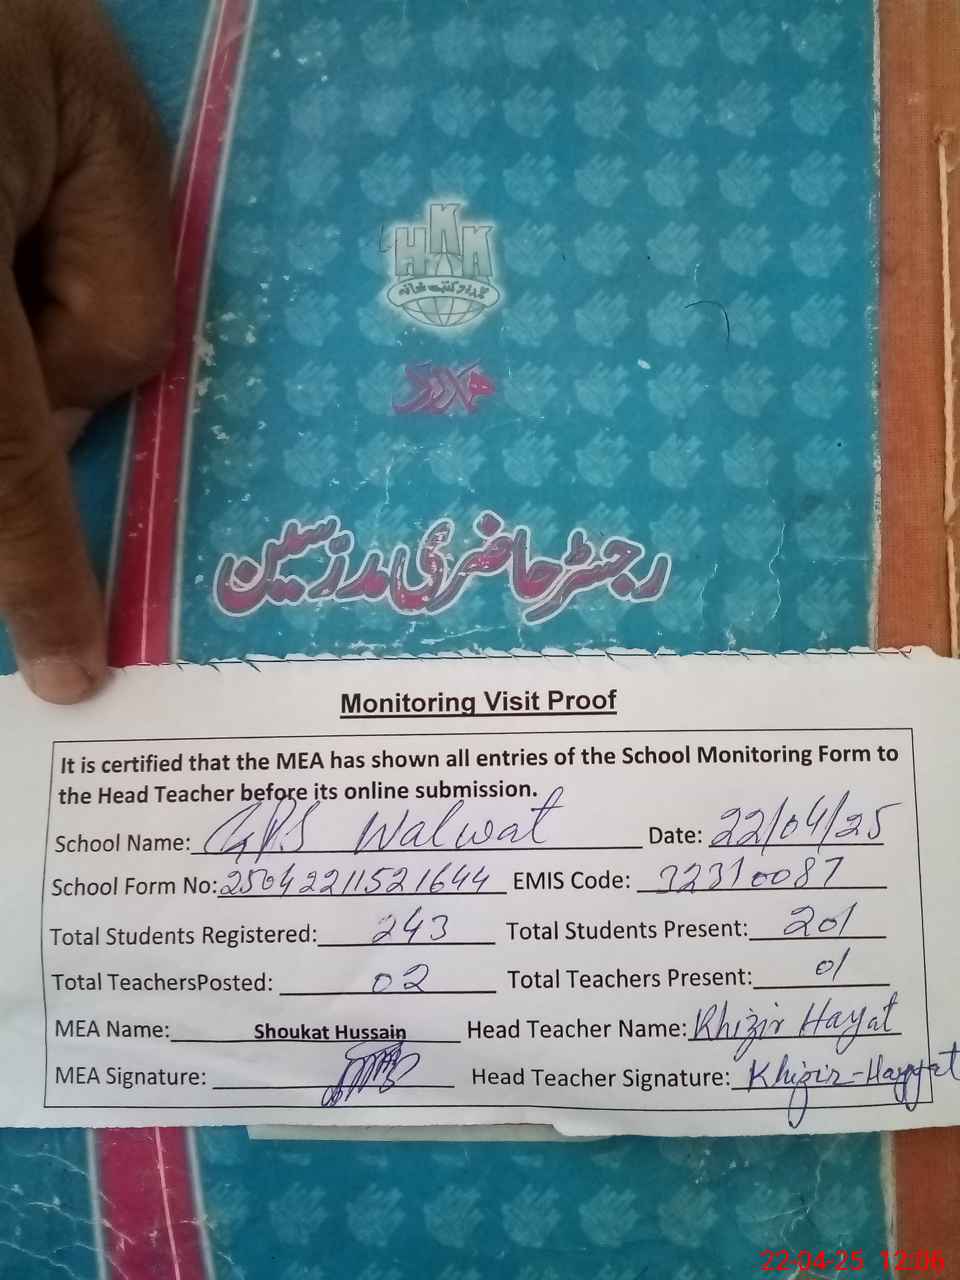 HKK
ہمدرد کتب خانہ
ہمدرد
رجسٹر حاضری مدرسین
Monitoring Visit Proof
It is certified that the MEA has shown all entries of the School Monitoring Form to
the Head Teacher before its online submission.
School Name: GPS Walwat Date: 22/04/25
School Form No: 25042211521644 EMIS Code: 32310087
Total Students Registered: 243 Total Students Present: 201
Total TeachersPosted: 02 Total Teachers Present: 01
MEA Name: Shoukat Hussain Head Teacher Name: Khizir Hayat
MEA Signature: Head Teacher Signature: Khizir-Hayyat
22-04-25 12:06